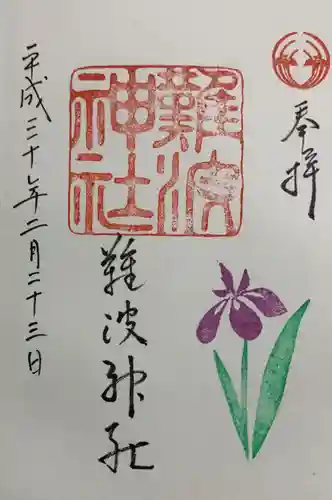 奉拝
難波
神社
難波神社
平成三十年二月二十三日